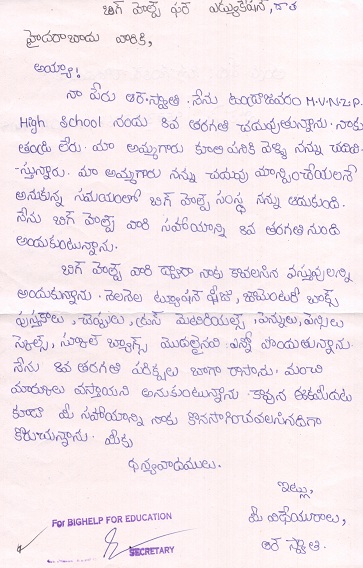 బిగ్ హెల్ప్ ఫర్ ఎడ్యుకేషన్,
హైదరాబాదు వారికి,
అయ్యా!
నా పేరు ఆర్.స్వాతి. నేను కుందాజవరం M.V.N.Z.P.
High School నందు 8వ తరగతి చదువుతున్నాను. నాకు
తండ్రి లేరు. మా అమ్మగారు కూలి పనికి వెళ్ళి నన్ను చదివి
-స్తున్నారు. మా అమ్మగారు నన్ను చదువు మాన్పించేయాలనే
అనుకున్న సమయంలో బిగ్ హెల్ప్ సంస్థ నన్ను ఆదుకుంది.
నేను బిగ్ హెల్ప్ వారి సహాయాన్ని 8వ తరగతి నుండి
అందుకుంటున్నాను.
బిగ్ హెల్ప్ వారి ద్వారా నాకు కావలసిన వస్తువులన్ని
అందుకున్నాను. నెలనెల ట్యూషన్ ఫీజు, జామెంటరీ బాక్స్
పుస్తకాలు, చెప్పులు, డ్రస్ మెటీరియల్స్, పెన్నులు, పెన్సిలు
స్కేల్స్, స్కూల్ బ్యాగ్స్ మొదలైనవి ఎన్నో పొందుతున్నాను.
నేను 8వ తరగతి పరీక్షలు బాగా రాసాను. మంచి
మార్కులు వస్తాయని అనుకుంటున్నాను. కావున ఈకమీదట
కూడా మీ సహాయాన్ని నాకు కొనసాగించవలసినదిగా
కోరుచున్నాను. మీకు
ధన్యవాదములు.
ఇట్లు,
మీ విధేయురాలు,
ఆర్ స్వాతి.
For BIGHELP FOR EDUCATION
SECRETARY